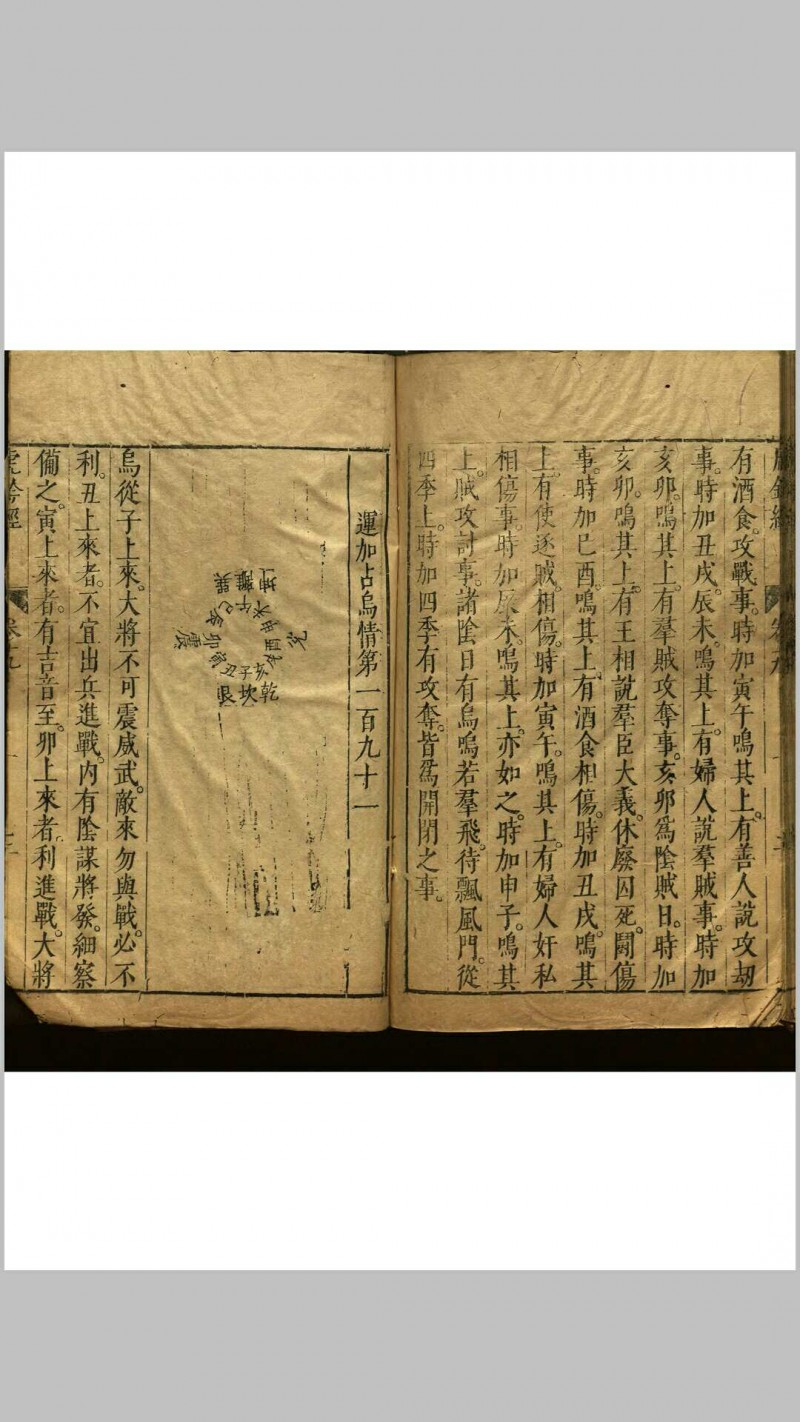 虎鈐經
卷九
有酒食。攻戰事。時加寅午。鳴其上。有善人說攻刼
事。時加丑戌。辰未。鳴其上。有婦人說羣賊事。時加
亥卯。鳴其上。有羣賊攻奪事。亥卯爲陰賊日。時加
亥卯。鳴其上。有王相說羣臣大義。休廢囚死。鬭傷
事。時加巳酉。鳴其上。有酒食相傷。時加丑戌。鳴其
上。有使逐賊。相傷。時加寅午。鳴其上。有婦人奸私
相傷事。時加辰未。鳴其上。亦如之。時加申子。鳴其
上。賊攻討事。諸陰日有烏鳴若羣飛。待飄風門。從
四季上。時加四季有攻奪。皆爲開閉之事。
運加占烏情第一百九十一
巽離坤
巳午未
震卯
酉
丑子亥
艮坎乾
烏從子上來。大將不可震威武。敵來勿與戰。必不
利。丑上來者。不宜出兵進戰。內有陰謀將發。細察
備之。寅上來者。有吉音至。卯上來者。利進戰。大將
虎鈐經
卷九